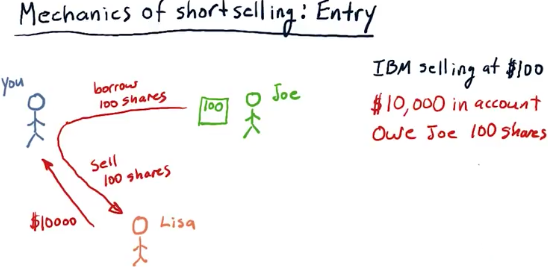 Mechanics of short selling: Entry
You
borrow
100 shares
100
Joe
Sell
100 shares
$10000
Lisa
IBM selling at $100
$10,000 in account
Owe Joe 100 shares